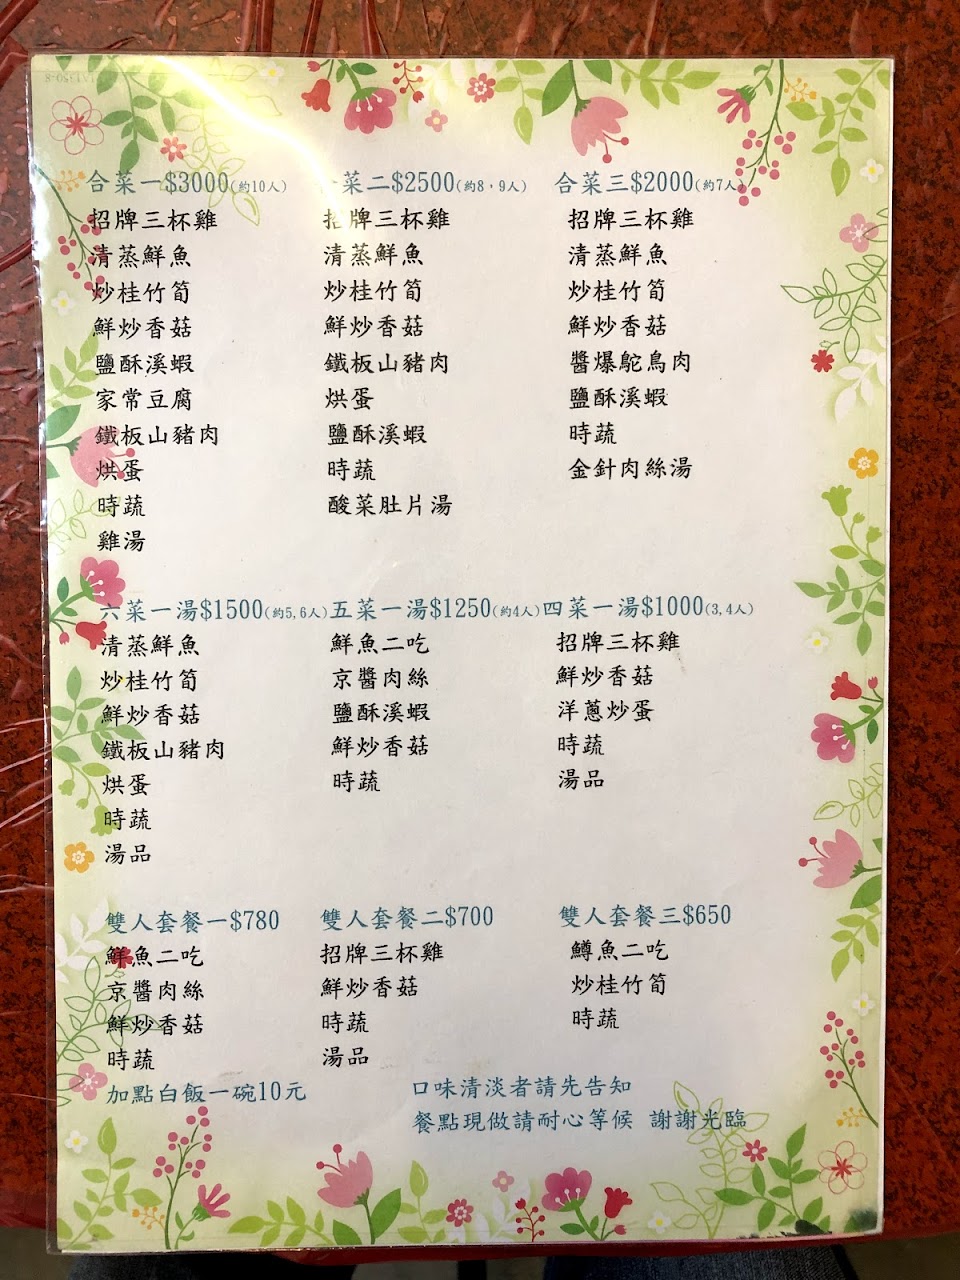 合菜一$3000(約10人)
招牌三杯雞
清蒸鮮魚
炒桂竹筍
鮮炒香菇
鹽酥溪蝦
家常豆腐
鐵板山豬肉
烘蛋
時蔬
雞湯
菜二$2500(約8，9人)
招牌三杯雞
清蒸鮮魚
炒桂竹筍
鮮炒香菇
鐵板山豬肉
烘蛋
鹽酥溪蝦
時蔬
酸菜肚片湯
合菜三$2000(約7人)
招牌三杯雞
清蒸鮮魚
炒桂竹筍
鮮炒香菇
醬爆鴕鳥肉
鹽酥溪蝦
時蔬
金針肉絲湯
六菜一湯$1500(約5,6人)
清蒸鮮魚
炒桂竹筍
鮮炒香菇
鐵板山豬肉
烘蛋
時蔬
湯品
五菜一湯$1250(約4人)
鮮魚二吃
京醬肉絲
鹽酥溪蝦
鮮炒香菇
時蔬
四菜一湯$1000(3,4人)
招牌三杯雞
鮮炒香菇
洋蔥炒蛋
時蔬
湯品
雙人套餐一$780
鮮魚二吃
京醬肉絲
鮮炒香菇
時蔬
雙人套餐二$700
招牌三杯雞
鮮炒香菇
時蔬
湯品
雙人套餐三$650
鱒魚二吃
炒桂竹筍
時蔬
加點白飯一碗10元
口味清淡者請先告知
餐點現做請耐心等候 謝謝光臨